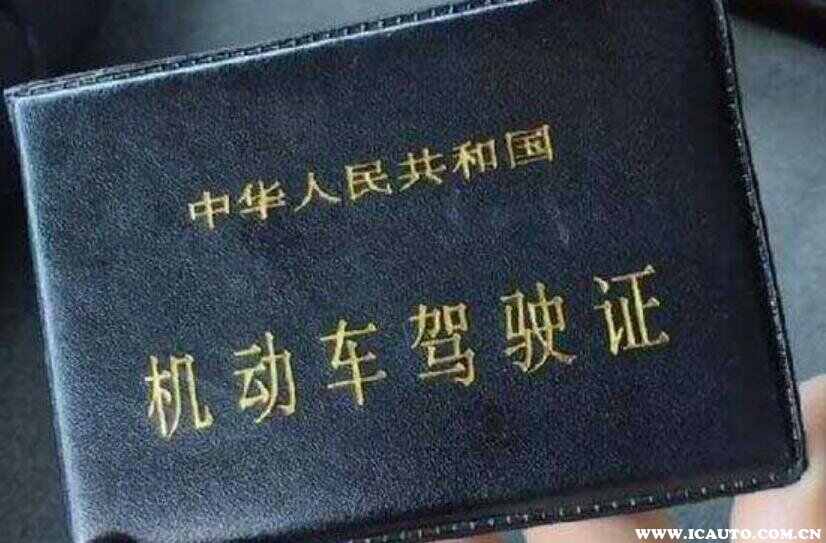 中华人民共和国
机动车驾驶证
WWW.ICAUTO.COM.CN